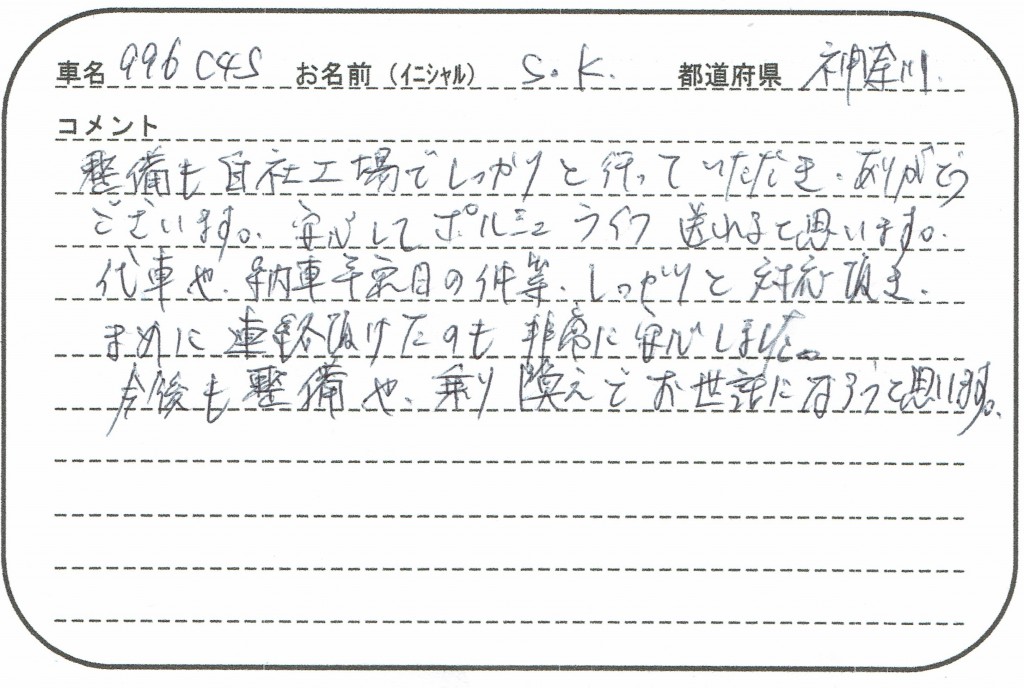 車名 996 C4S お名前（イニシャル） S.K. 都道府県 神奈川.
コメント
整備も自社工場でしっかりと行っていただき、ありがとう
ございます。安心してポルシェライフ送れると思います。
代車や、納車予定日の件等、しっかりと対応頂き、
まめに連絡頂けたのも非常に安心しました。
今後も整備や、乗り換えでお世話になろうと思います。